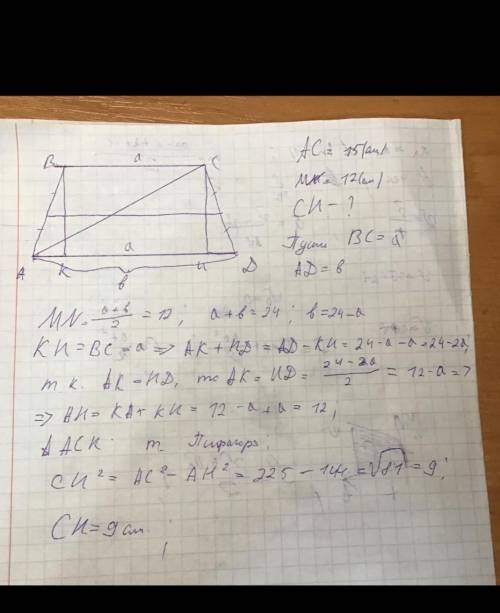 B a C
AC = 15 (см)
MN = 12 (см)
CH - ?
Пусть BC = a
AD = b
a
A K H D
b
MN = a+b/2 = 12, a+b = 24; b = 24-a
KH = BC = a => AK + HD = AD - KH = 24-a-a = 24-2a;
т к. AK = HD, то AK = HD = 24-2a/2 = 12-a =>
=> AH = KA + KH = 12-a+a = 12,
Δ ACH т. Пифагора:
CH² = AC² - AH² = 225 - 144 = √81 = 9;
CH = 9 см